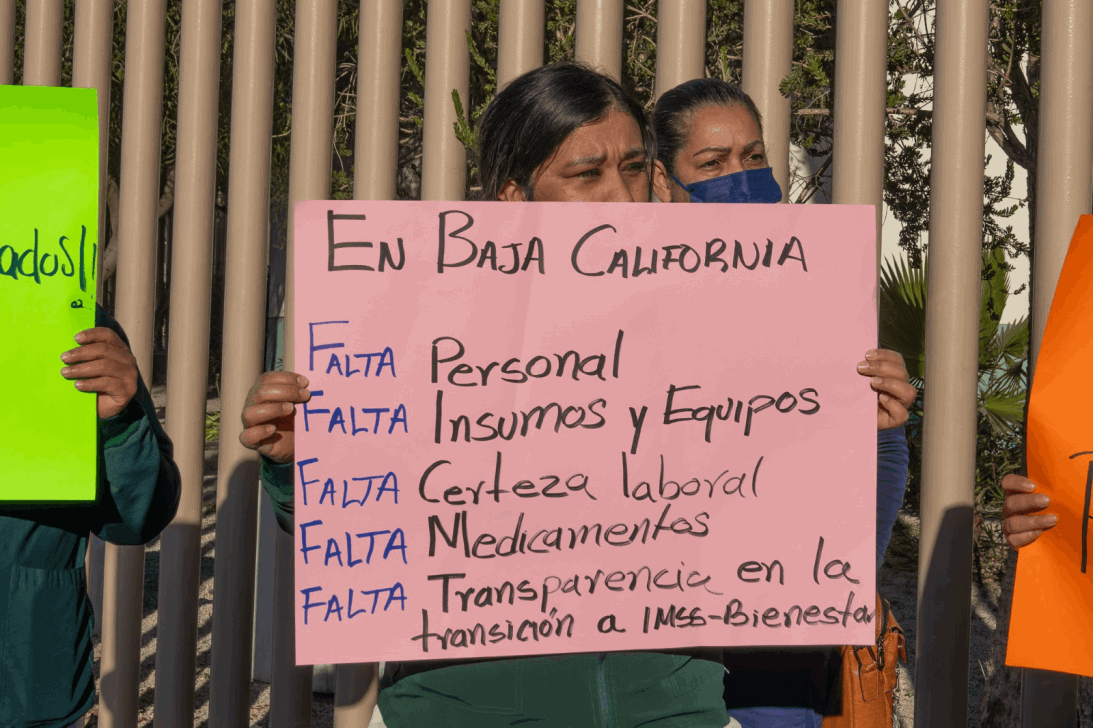 En Baja California
Falta Personal
Falta Insumos y Equipos
Falta Certeza laboral
Falta Medicamentos
Falta Transparencia en la
transición a IMSS-Bienestar